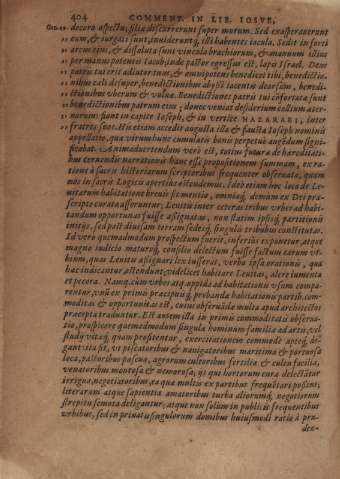 404 COMMENT. IN LIB. IOSVE,
Gen. 49. decoro aspectu, filiæ discurrerunt super murum. Sed exasperauerunt
„ eum, & iurgati sunt, inuiderunt‍q́; illi habentes iacula. Sedit in forti
„ arcus eius, & dissoluta sunt vincula brachiorum, & manuum illius
„ per manus potentis Iacob: inde pastor egressus est, lapis Israel. Deus
„ patris tui erit adiutor tuus, & omnipotens benedicet tibi, benedictio-
„ nibus cæli desuper, benedictionibus abyssi iacentis deorsum, benedi-
„ ctionibus vberum & vuluæ. Benedictiones patris tui cōfortatæ sunt
„ benedictionibus patrum eius; donec veniat desiderium collium æter-
„ norum: fiant in capite Ioseph, & in vertice NAZARAEI, inter
„ fratres suos. His etiam accedit augusta illa & fausta Ioseph nominis
appellatio, qua virum hunc cumulatis bonis perpetuò augēdum signi-
ficabat. Animaduertendum verò est, totius futuræ de hæreditati-
bus cernundis narrationis hanc esse propositionem summam, ex ra-
tione à sacris historiarum scriptoribus frequenter obseruata, quam
nos in sacris Logicis apertius ostendemus. Ideo etiam hoc loco de Le-
uitarum habitatione breuis fit mentio, omniaq́; demum ex Dei præ-
scripto curata asseruntur; Leuitis inter ceteras tribus vrbes ad habi-
tandum opportunas fuisse assignatas, non statim ipsisq́; partitionis
initijs, sed post diuisam terram sedesq́; singulis tribubus constitutas.
Id vero quemadmodum prospectum fuerit, inferiùs exponetur, atque
magno iudicio maturiq́; consilio delectum fuisse factum earum vr-
bium, quas Leuitis assignari lex iusserat, verba ipsa orationis, qua
hæc indicantur, ostendunt; videlicet habitare Leuitas, alere iumenta
et pecora. Namq́; cùm vrbes atq́; oppida ad habitationis vsum compa-
rentur, vnū ex primis præcipuisq́; probanda habitationis partib. com-
moditas & opportunitas est, cuius obseruādæ multa apud architectos
præcepta traduntur. Est autem illa in primis commoditatis obserua-
tio, prospicere quemadmodum singula hominum familia ad artis, vel
studij vitæq́; quam profitentur, exercitationem commodè apteq́; de-
gant: vita sit, vt piscatoribus & nauigatoribus maritima & portuosa
loca, pastoribus pascua, agrorum cultoribus fertilia & cultu facilia,
venatoribus montosa & nemorosa; ijs qui hortorum cura delectātur
irrigua, negotiatoribus, ea quæ multis ex partibus frequētari possint;
literarum atque sapientiæ amatoribus turba aliorumq́; negotiorum
strepitu semota deligantur; atque non solùm in publicis frequentibus
vrbibus, sed in priuatis singulorum domibus huiusmodi ratio à pru-
den-